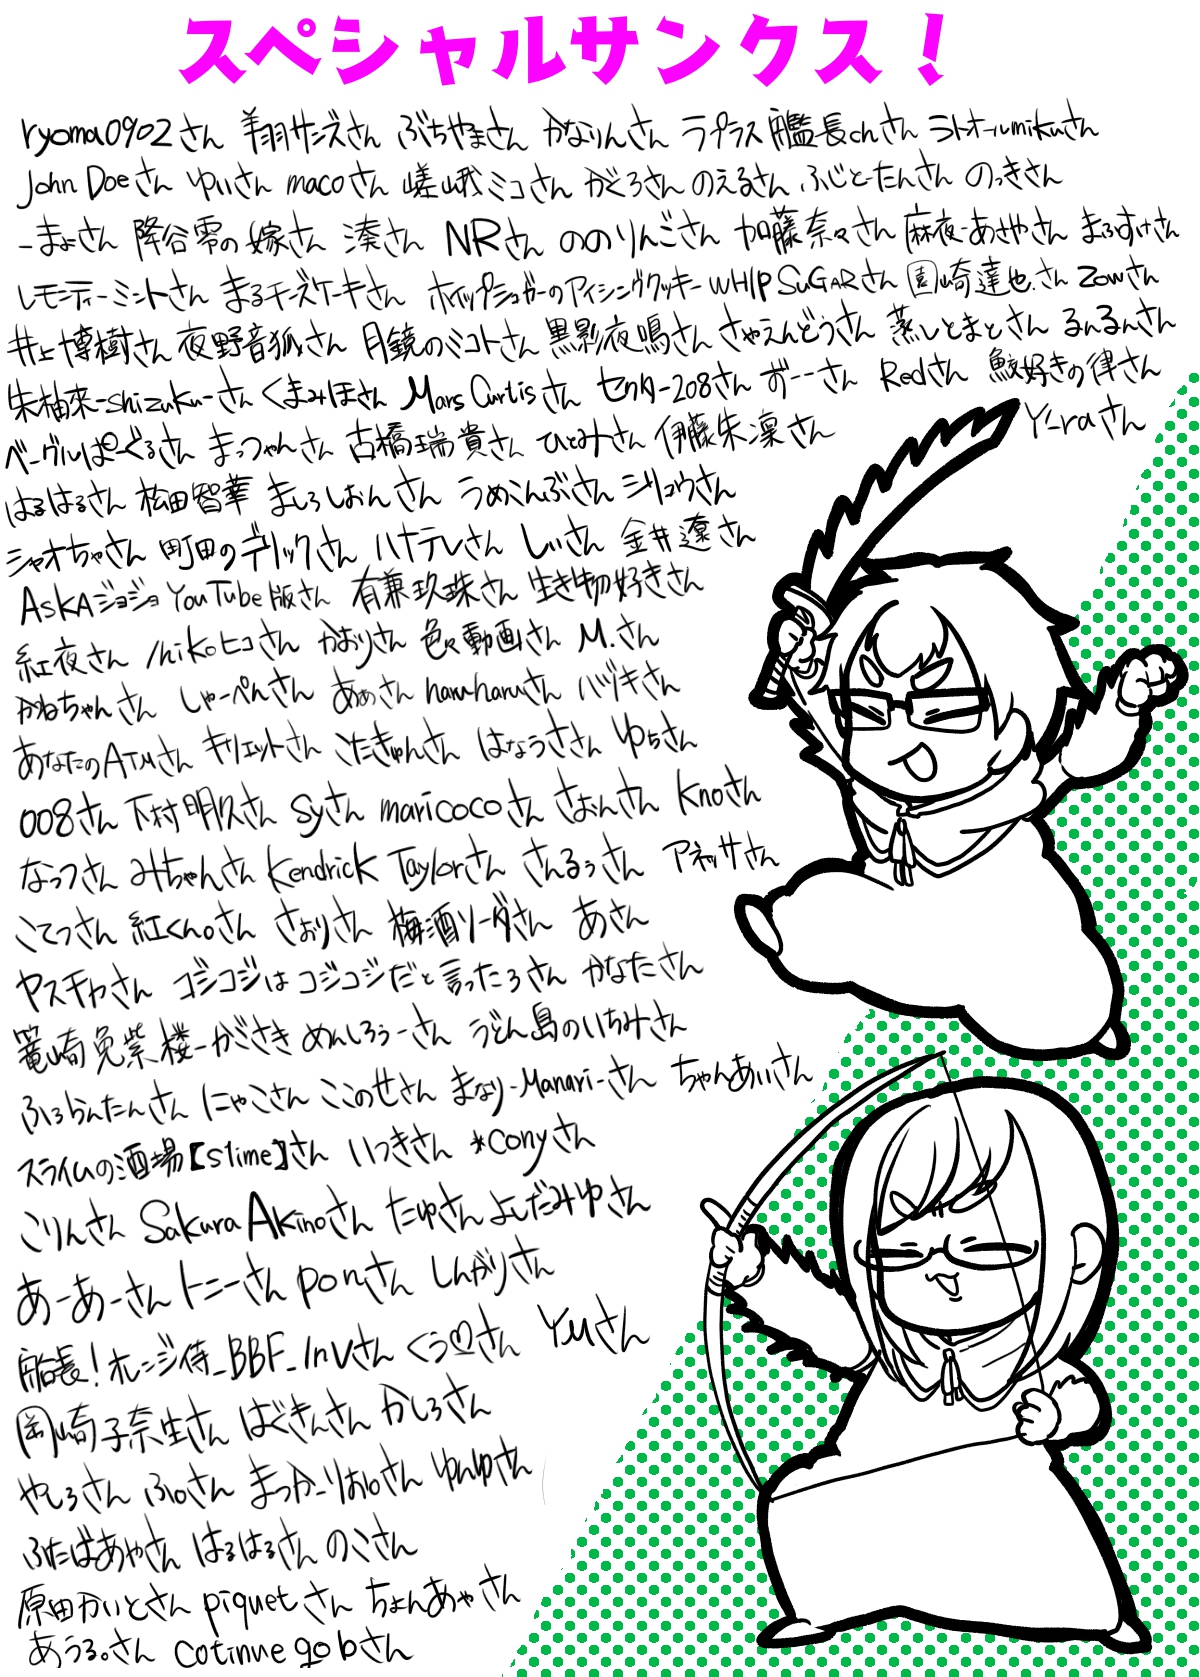 スペシャルサンクス！
ryoma0902さん 翔サンズさん ぶちやまさん かなりんさん ラプラス艦長chさん ラトオールmikuさん
John Doeさん ゆいさん macoさん 嵯峨ミコさん がくろさん のえるさん ふじとーたんさん のっきさん
-まよさん 降谷零の嫁さん 湊さん NRさん ののりんごさん 加藤奈々さん 麻夜-あさやさん まふすけさん
レモンティーミントさん まるチーズケーキさん ホイップシュガーのアイシングクッキーWHIP SUGARさん 園崎達也.さん zowさん
井上博樹さん 夜野音狐さん 月鏡のミコトさん 黒影夜鳴さん さやえんどうさん 蒸しとまとさん るんるんさん
朱柚来-shizuku-さん くまみほさん Mars Curtisさん セクター208さん おーーさん Redさん 鮫好きの律さん
ベーグルぱーぐるさん まっつゃんさん 古橋瑞貴さん ひとみさん 伊藤朱凜さん Y-raさん
はるはるさん 松田智華 ましろしおんさん うめこんぶさん シリコウさん
シャオちゃさん 町田のデリックさん ハナテレさん しぃさん 金井遼さん
ASKAジョジョYouTube版さん 有兼玖珠さん 生き物好きさん
紅夜さん /hikoヒコさん かおりさん 色々動画さん M.さん
かねちゃんさん しゃーぺんさん あぁさん haruharuさん ハヅキさん
あなたのATMさん キリエットさん こたきゅんさん はなうささん ゆちさん
008さん 下村明久さん syさん maricocoさん さおんさん knoさん
なっつさん みちゃんさん Kendrick Taylorさん さんるぅさん アネッサさん
こてつさん 紅くん。さん さおりさん 梅酒ソーダさん あさん
ヤスチカさん コジコジはコジコジだと言ったろさん かなたさん
篭崎兎紫楼-がさき めんしろぅーさん うどん島のいちみさん
ふぃらんたんさん にゃこさん ここのせさん まなり-Manari-さん ちゃんあいさん
スライムの酒場【slime】さん いっきさん *conyさん
こりんさん Sakura Akinoさん たゆさん よしだみゆさん
あーあーさん トニーさん ponさん しんがりさん
船長！オレンジ侍_BBF_Invさん くう♡さん Yuさん
岡崎子奈生さん はぐきんさん かしろさん
やしろさん ふ。さん まっかーりお。さん ゆんゆさん
ふたばあやさん はるはるさん のこさん
原田かいとさん piquetさん ちょんあゃさん
あうる。さん cotinue go bさん